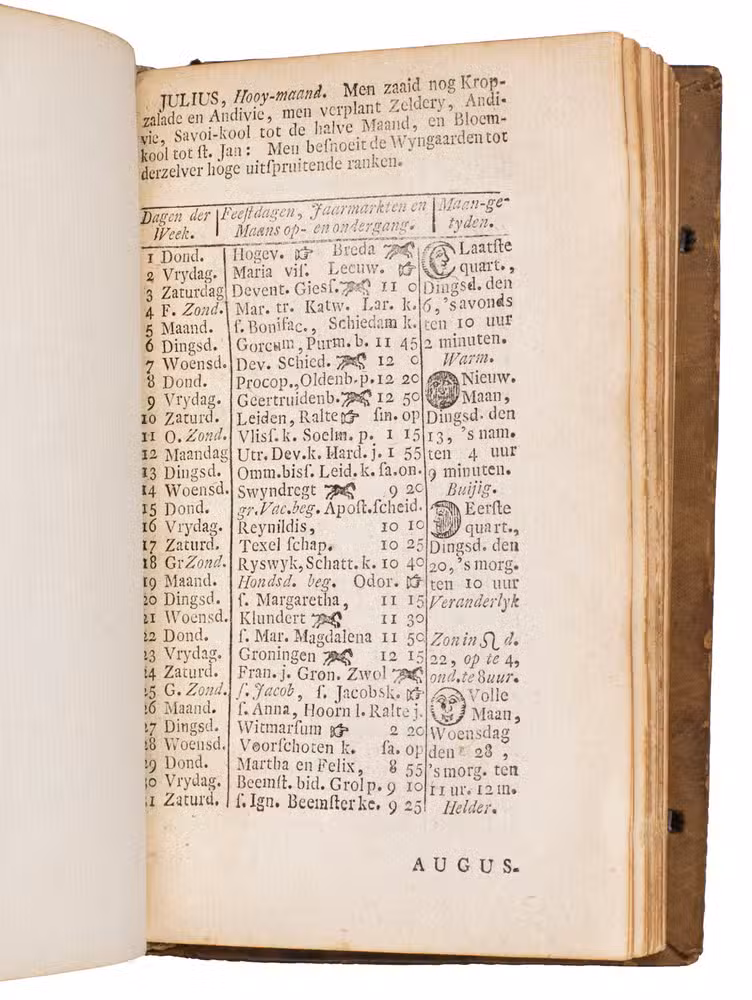 JULIUS, Hooy-maand. Men zaaid nog Krop-
zalade en Andivie, men verplant Zeldery, Andi-
vie, Savoi-kool tot de halve Maand, en Bloem-
kool tot ſt. Jan: Men beſnoeit de Wyngaarden tot
derzelver hoge uitſpruitende ranken.
Dagen der Week.
Feeſtdagen, Jaarmarkten en Maans op- en ondergang.
Maan-ge-tyden.
1 Dond. Hogev. ☞ Breda
2 Vrydag. Maria viſ. Leeuw. ☞
3 Zaturdag Devent. Gieſſ. 11 0
4 F. Zond. Mar. tr. Katw. Lar. k.
5 Maand. ſ. Bonifac., Schiedam k.
6 Dingsd. Gorcum, Purm. b. 11 45
7 Woensd. Dev. Schied. 12 0
8 Dond. Procop., Oldenb. p. 12 20
9 Vrydag. Geertruidenb. 12 50
10 Zaturd. Leiden, Ralte ☞ ſm. op
11 O. Zond. Vliſſ. k. Soelm. p. 1 15
12 Maandag Utr. Dev. k. Hard. j. 1 55
13 Dingsd. Omm. biſſ. Leid. k. ſa. on.
14 Woensd. Swyndregt 9 20
15 Dond. gr. Vac. beg. Apoſt. ſcheid.
16 Vrydag. Reynildis, 10 10
17 Zaturd. Texel ſchap. 10 25
18 Gr Zond. Ryswyk, Schatt. k. 10 40
19 Maand. Hondsd. beg. Odor. ☞
20 Dingsd. ſ. Margaretha, 11 15
21 Woensd. Klundert 11 30
22 Dond. ſ. Mar. Magdalena 11 50
23 Vrydag. Groningen 12 15
24 Zaturd. Fran. j. Gron. Zwol
25 G. Zond. ſ. Jacob, ſ. Jacobsk. ☞
26 Maand. ſ. Anna, Hoorn l. Ralte j.
27 Dingsd. Witmarſum ☞ 2 20
28 Woensd. Voorſchoten k. ſa. op
29 Dond. Martha en Felix, 8 55
30 Vrydag. Beemſt. bid. Grol p. 9 10
31 Zaturd. ſ. Ign. Beemſter ke. 9 25
Laatſte
quart.,
Dingsd. den
6, 's avonds
ten 10 uur
2 minuten.
Warm.
Nieuw.
Maan,
Dingsd. den
13, 's nam.
ten 4 uur
9 minuten.
Buijig.
Eerſte
quart.,
Dingsd. den
20, 's morg.
ten 10 uur
Veranderlyk
Zon in ♌ d.
22, op te 4,
ond. te 8 uur.
Volle
Maan,
Woensdag
den 28,
's morg. ten
11 ur. 12 m.
Helder.
AUGUS-